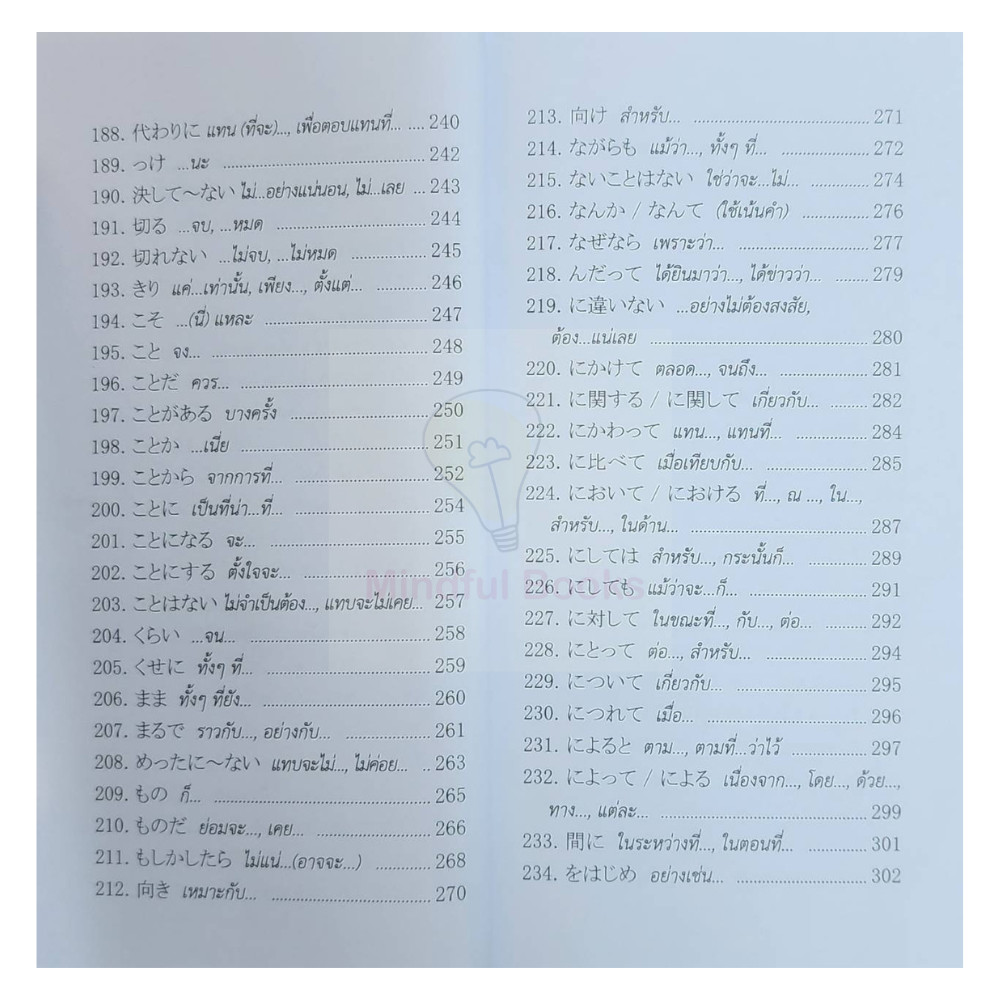 188. 代わりに แทน (ที่จะ)..., เพื่อตอบแทนที่... .... 240
189. っけ ...นะ .... 242
190. 決して～ない ไม่...อย่างแน่นอน, ไม่...เลย ... 243
191. 切る ...จบ, ...หมด .... 244
192. 切れない ...ไม่จบ, ...ไม่หมด .... 245
193. きり แค่...เท่านั้น, เพียง..., ตั้งแต่... .... 246
194. こそ ...(นี่) แหละ .... 247
195. こと จง... .... 248
196. ことだ ควร... .... 249
197. ことがある บางครั้ง .... 250
198. ことか ...เนี่ย .... 251
199. ことから จากการที่... .... 252
200. ことに เป็นที่น่า...ที่... .... 254
201. ことになる จะ... .... 255
202. ことにする ตั้งใจจะ... .... 256
203. ことはない ไม่จำเป็นต้อง..., แทบจะไม่เคย... 257
204. くらい ...จน... .... 258
205. くせに ทั้งๆ ที่... .... 259
206. まま ทั้งๆ ที่ยัง... .... 260
207. まるで ราวกับ..., อย่างกับ... .... 261
208. めったに～ない แทบจะไม่..., ไม่ค่อย... .. 263
209. もの ก็... .... 265
210. ものだ ย่อมจะ..., เคย... .... 266
211. もしかしたら ไม่แน่...(อาจจะ...) .... 268
212. 向き เหมาะกับ... .... 270
213. 向け สำหรับ... .... 271
214. ながらも แม้ว่า..., ทั้งๆ ที่... .... 272
215. ないことはない ใช่ว่าจะ...ไม่... .... 274
216. なんか / なんて (ใช้เน้นคำ) .... 276
217. なぜなら เพราะว่า... .... 277
218. んだって ได้ยินมาว่า..., ได้ข่าวว่า... .... 279
219. に違いない ...อย่างไม่ต้องสงสัย,
ต้อง...แน่เลย .... 280
220. にかけて ตลอด..., จนถึง... .... 281
221. に関する / に関して เกี่ยวกับ... .... 282
222. にかわって แทน..., แทนที่... .... 284
223. に比べて เมื่อเทียบกับ... .... 285
224. において / における ที่..., ณ ..., ใน...,
สำหรับ..., ในด้าน... .... 287
225. にしては สำหรับ..., กระนั้นก็... .... 289
226. にしても แม้ว่าจะ...ก็... .... 291
227. に対して ในขณะที่..., กับ..., ต่อ... .... 292
228. にとって ต่อ..., สำหรับ... .... 294
229. について เกี่ยวกับ... .... 295
230. につれて เมื่อ... .... 296
231. によると ตาม..., ตามที่...ว่าไว้ .... 297
232. によって / による เนื่องจาก..., โดย..., ด้วย...,
ทาง..., แต่ละ... .... 299
233. 間に ในระหว่างที่..., ในตอนที่... .... 301
234. をはじめ อย่างเช่น... .... 302
Mindful Books